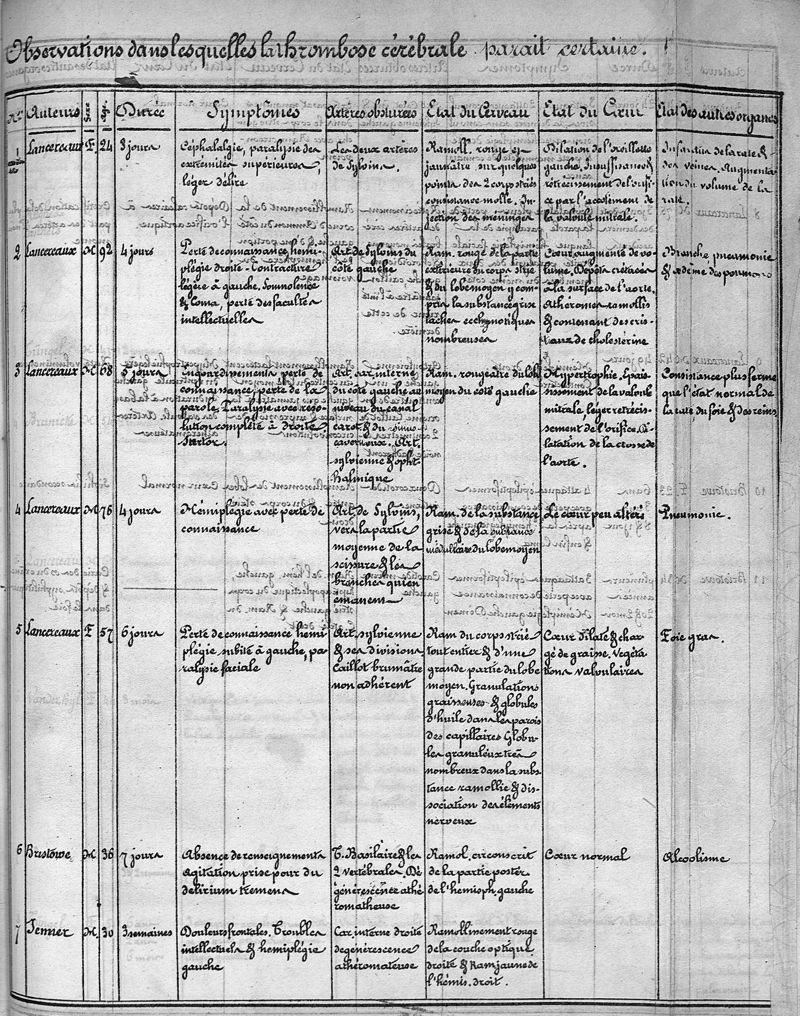 Observations dans lesquelles la thrombose cérébrale parait certaine.
Nos Auteurs Sexe Age Durée Symptomes Artères obturées Etat du Cerveau Etat du Cœur Etat des autres organes
1 Lancereaux F 24 3 jours
Céphalalgie, paralysie des
extrémités supérieures,
léger délire
Les deux artères
de Sylvius.
Ramoll. rouge et
jaunâtre sur quelques
points des 2 corps striés
consistance molle. In-
jection des méninges
Dilation de l'oreillette
gauche, Insuffisance &
rétrécissement de l'orifi-
ce par l'accolement de
la valvule mitrale.
Infarctus de la rate &
des reines. Augmenta-
tion du volume de la
rate.
2 Lancereaux M 92 4 jours
Perte de connaissance, hemi-
plégie droite - Contracture
légère à gauche. Somnolence
& Coma, perte des facultés
intellectuelles
Art. de Sylvius du
côté gauche
Ram. rouge de la partie
extérieure du corps strié
& du lobe moyen y com-
pris la substance grise
taches ecchymotiques
nombreuses
Cœur augmenté de vo-
lume. Dépôts crétacés
à la surface de l'aorte.
Athéromes ramollis
& contenant des cris-
taux de cholestérine
Broncho pneumonie
& œdème des poumons
3 Lancereaux M 68 5 jours
Engourdissements perte de
connaissance, perte de la
parole. Paralysie avec réso-
lution complète à droite
Stertor.
Art. car. interne
du côté gauche au
niveau du canal
carot. & du sinus
caverneux. Art.
sylvienne & opht-
halmique
Ram. rougeatre du lobe
moyen du coté gauche
Hypertrophie. Epais-
sissement de la valvule
mitrale, léger rétrécis-
sement de l'orifice. Di-
latation de la crosse de
l'aorte.
Consistance plus ferme
que l'état normal de
la rate du foie & des reins.
4 Lancereaux M 76 4 jours
Hémiplégie avec perte de
connaissance
Art. de Sylvius,
vers la partie
moyenne de la
scissure & les
branches qui en
émanent
Ram. de la substance
grise & de la substance
médullaire du lobe moyen
Le cœur peu altéré
Pneumonie.
5 Lancereaux F 57 6 jours
Perte de connaissance hemi-
plégie subite à gauche, pa-
ralysie faciale
Art. sylvienne
& ses divisions
Caillot brunâtre
non adhérent
Ram du corps strié
tout entier & d'une
grande partie du lobe
moyen. Granulations
graisseuses & globules
d'huile dans les parois
des capillaires Globu-
les granuleux très
nombreux dans la subs-
tance ramollie & dis-
sociation des éléments
nerveux
Cœur dilaté & char-
gé de graisse. Végéta-
tions valvulaires
Foie gras.
6 Bristowe M 36 7 jours
Absence de renseignements
Agitation prise pour du
delirium tremens
T. Basilaire & les
2 vertébrales. Dé-
générescence athé-
romatheuse
Ramol. circonscrit
de la partie poster.
de l'hemisph. gauche
Cœur normal
Alcoolisme
7 Jenner M 30 3 semaines
Douleurs frontales. Troubles
intellectuels & hemiplégie
gauche
Car. interne droite
degénérescence
athéromateuse
Ramollissement rouge
de la couche optique
droite & Ram jaune de
l'hémis. droit.